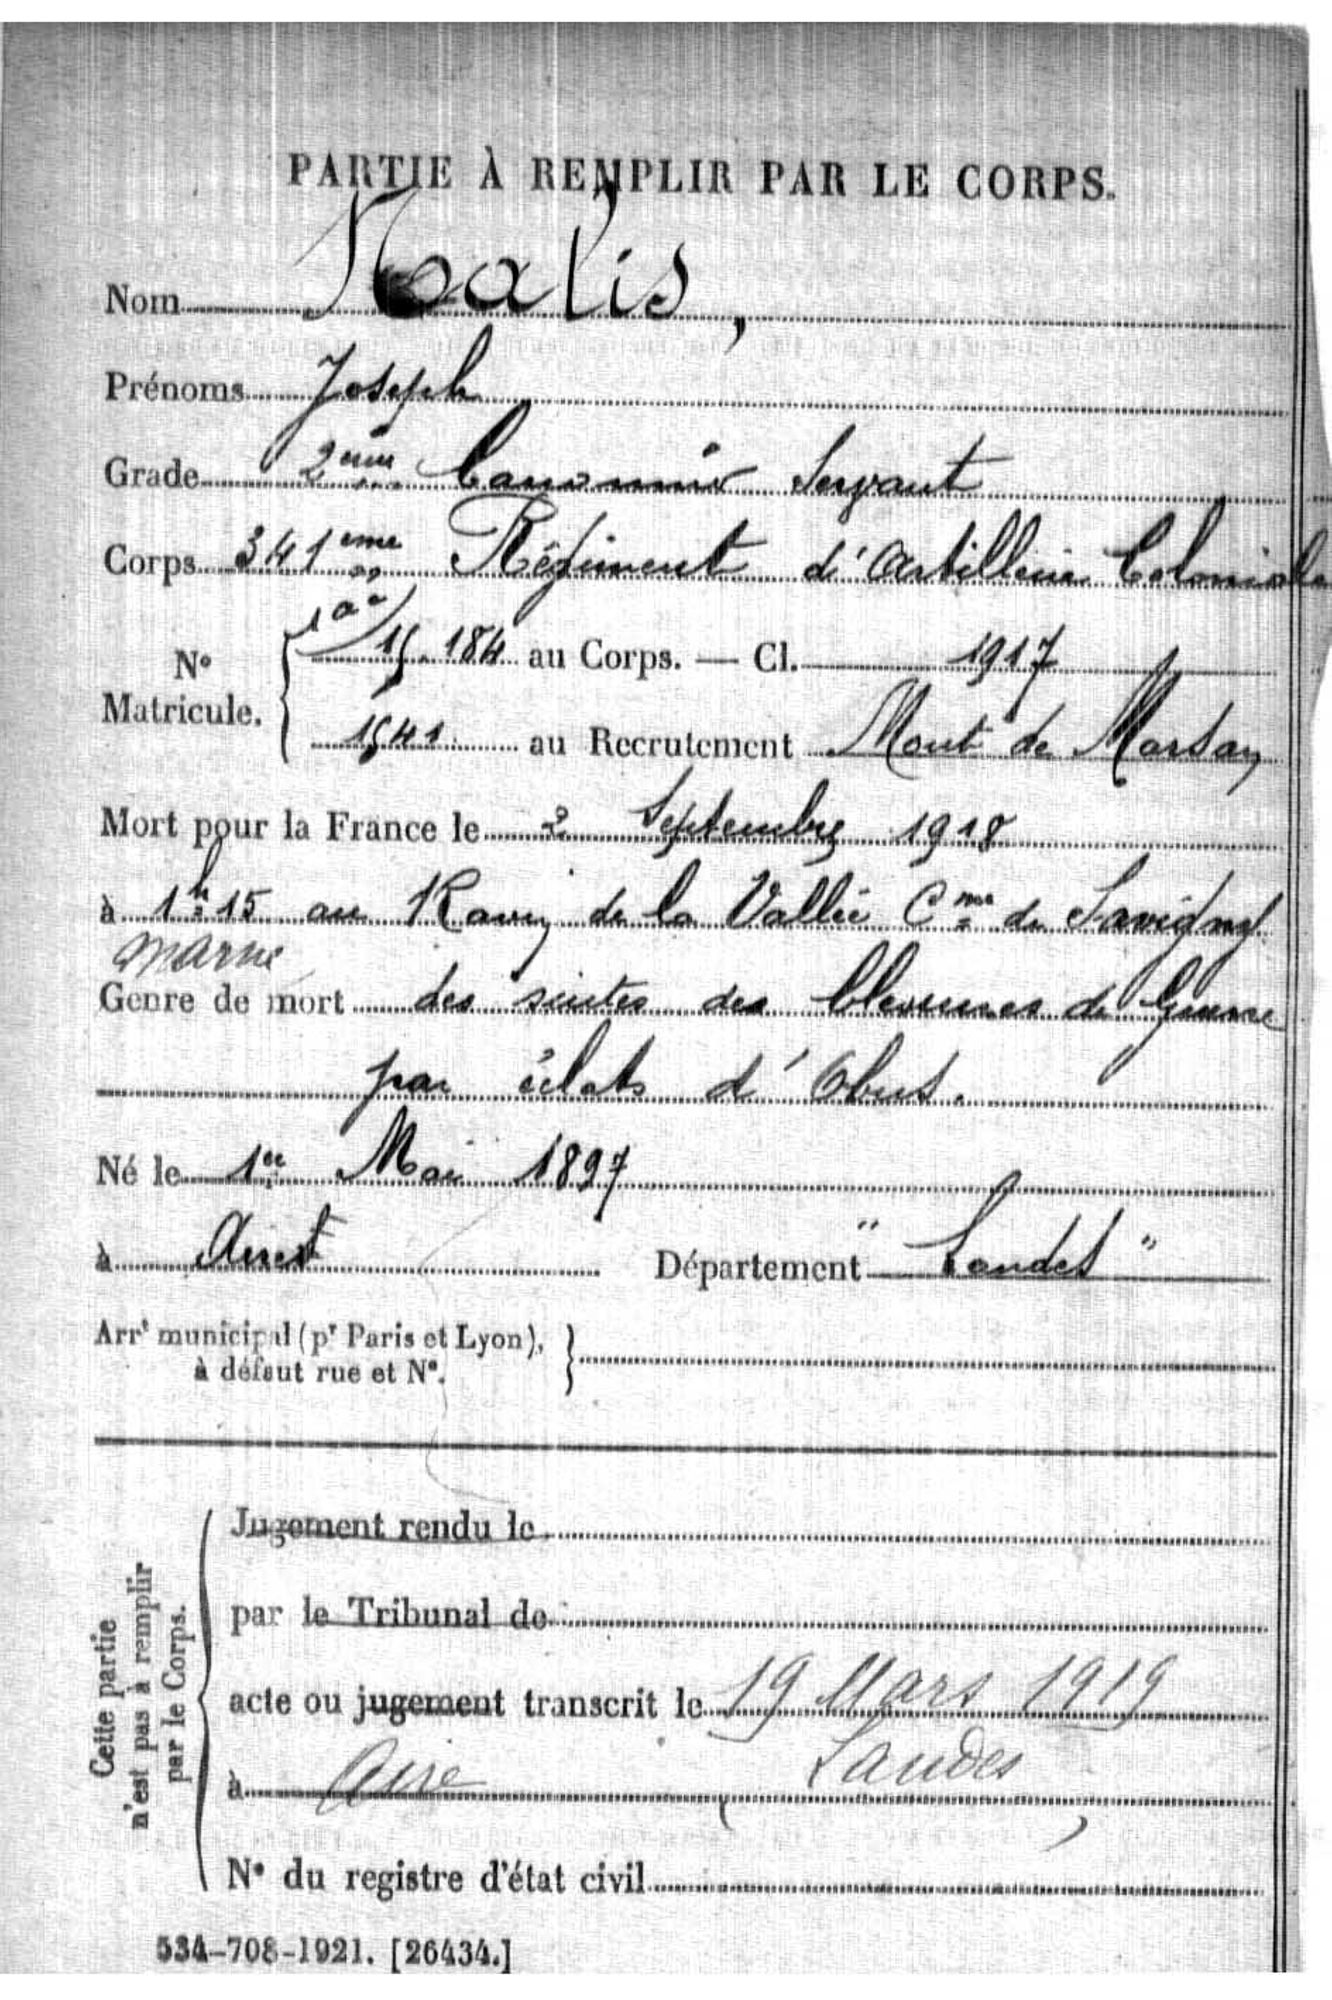 PARTIE À REMPLIR PAR LE CORPS.
Nom
Prénoms Joseph
Grade 2ème Canonnier Servant
Corps 341ème Régiment d'Artillerie Coloniale
1er ac
N° Matricule. 15.184 au Corps. — Cl. 1917
1541 au Recrutement Mont de Marsan
Mort pour la France le 2 Septembre 1918
à 1h15 au Ravin de la Vallée Cne de Savigny
Marne
Genre de mort des suites des blessures de Guerre
par éclats d'Obus.
Né le 1er Mai 1897
à Département "Landes"
Arrt municipal (pr Paris et Lyon), à défaut rue et N°.
Cette partie n'est pas à remplir par le Corps.
Jugement rendu le
par le Tribunal de
acte ou jugement transcrit le 19 Mars 1919
à Aire (Landes)
N° du registre d'état civil
534-708-1921. [26434.]